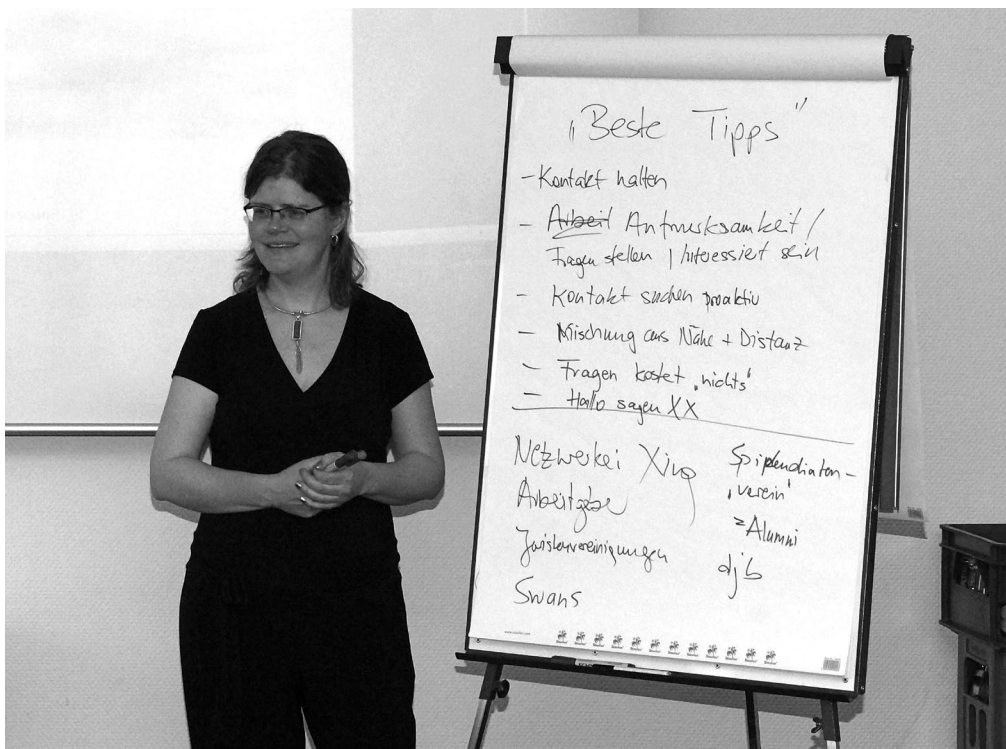 „Beste Tipps"
- Kontakt halten
- Arbeit Aufmerksamkeit /
Fragen stellen / Interessiert sein
- Kontakt suchen proaktiv
- Mischung aus Nähe + Distanz
- Fragen kostet „nichts"
- Hallo sagen XX
Netzwerkei Xing
Arbeitgebe
Juristenvereinigungen
Swans
Stipendiaten-
„verein"
=Alumni
djb